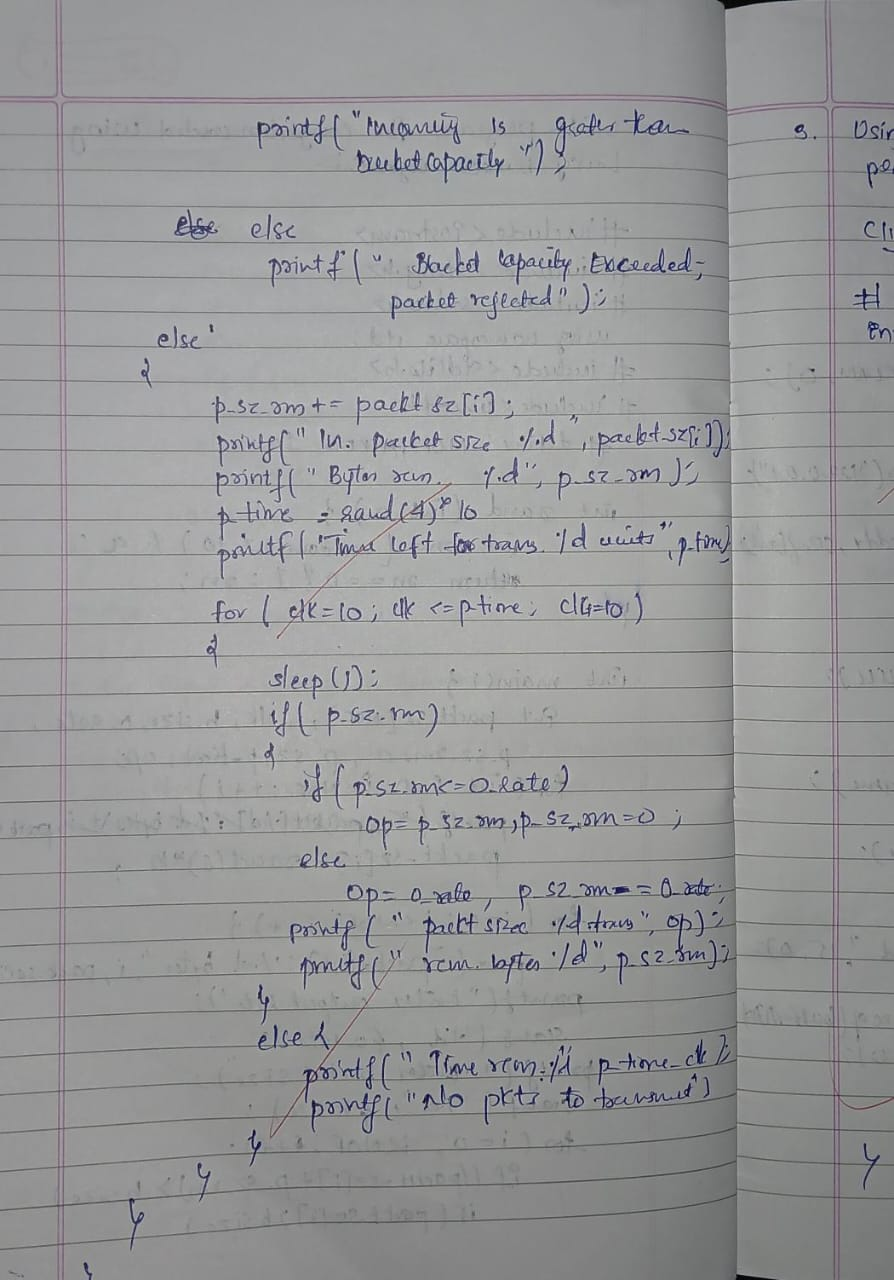 printf("Incoming is greater than
bucket capacity");
else else
printf(" Bucket Capacity Exceeded;
packet rejected");
else
{
p_sz_rm += packt sz[i];
printf(" In. packet size %d", packet_sz[i]);
printf(" Bytes rem. %d", p_sz_rm);
p_time = rand(4)*10
printf("Time left for trans. %d units", p_time)
for ( clk=10; clk <=p-time; clk=10)
{
sleep(1);
if( p_sz_rm)
{
if (p_sz_rm<=o_rate)
Op= p_sz_rm, p_sz_rm=0 ;
else
Op= o_rate, p_sz_rm-= o_rate;
printf (" packt size %d trans", op);
printf(" rem. bytes %d", p_sz_rm);
}
else {
printf(" Time rem. %d p_time_clk);
printf("No pkts to transmit")
}
}
}
}
9. Usin
pe
Cli
#
en
}